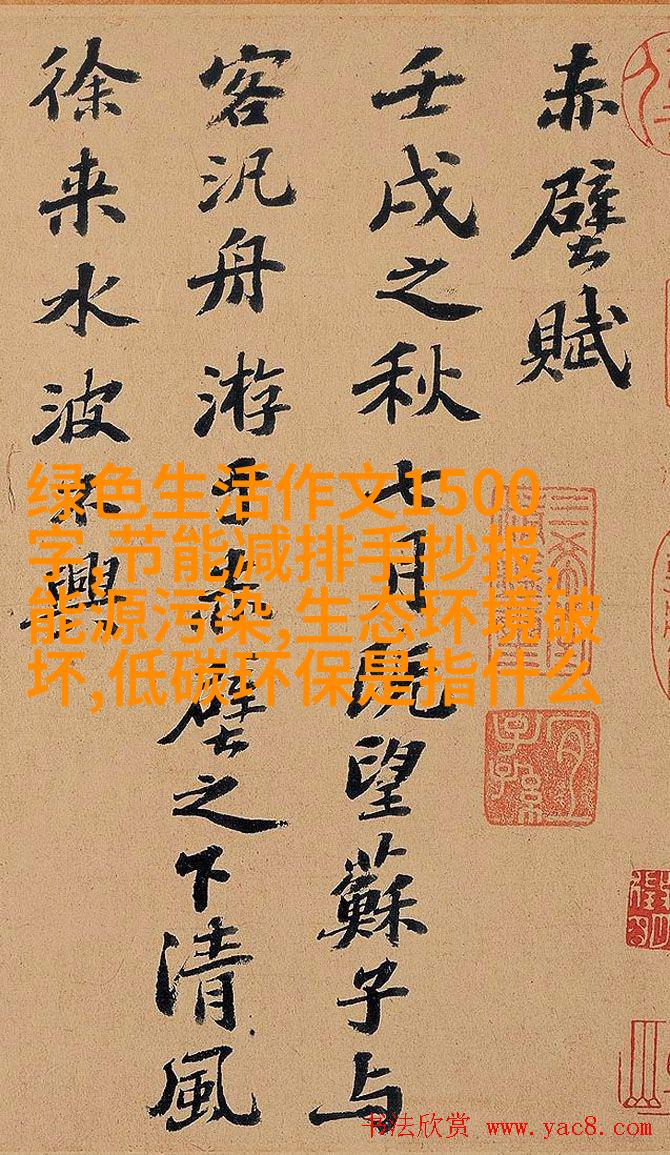 赤壁賦
壬戌之秋七月既望蘇子与
客汎舟游于赤壁之下清風
徐来水波不興
绿色生活作文1500
字,节能减排手抄报,
能源污染,生态环境破
坏,低碳环保是指什么
书法欣赏 www.yac8.com